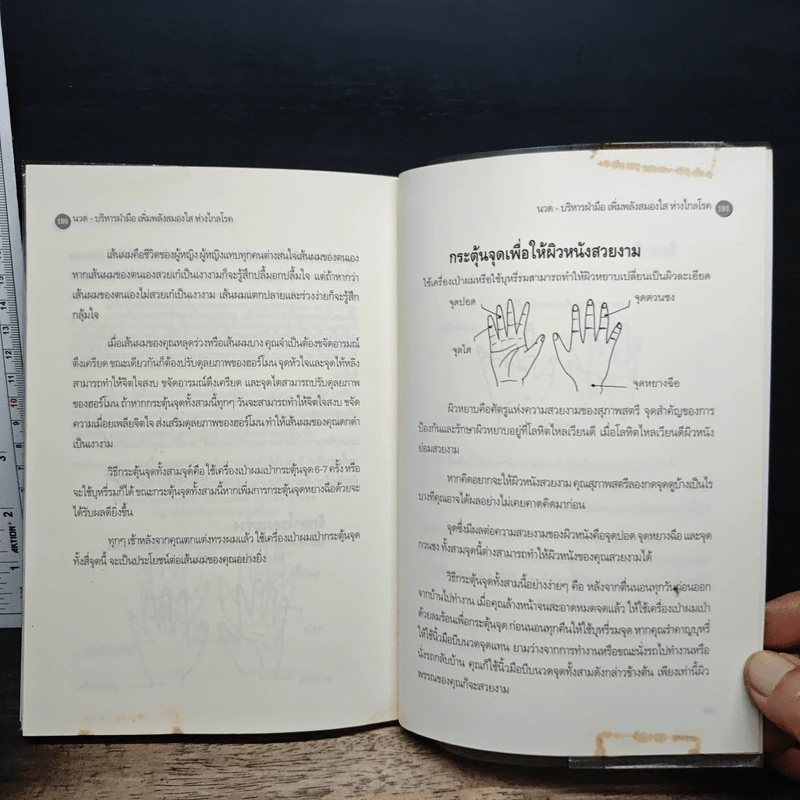 190 นวด - บริหารฝ่ามือ เพิ่มพลังสมองใส ห่างไกลโรค
เส้นผมคือชีวิตของผู้หญิง ผู้หญิงแทบทุกคนต่างสนใจเส้นผมของตนเอง
หากเส้นผมของตนเองสวยเก๋เป็นเงางามก็จะรู้สึกปลื้มอกปลื้มใจ แต่ถ้าหากว่า
เส้นผมของตนเองไม่สวยเก๋เป็นเงางาม เส้นผมแตกปลายและร่วงง่ายก็จะรู้สึก
กลุ้มใจ
เมื่อเส้นผมของคุณหลุดร่วงหรือเส้นผมบาง คุณจำเป็นต้องขจัดอารมณ์
ตึงเครียด ขณะเดียวกันก็ต้องปรับดุลยภาพของฮอร์โมน จุดหัวใจและจุดไท้หลิง
สามารถทำให้จิตใจสงบ ขจัดอารมณ์ตึงเครียด และจุดไตสามารถปรับดุลยภาพ
ของฮอร์โมน ถ้าหากกระตุ้นจุดทั้งสามนี้ทุกๆ วันจะสามารถทำให้จิตใจสงบ ขจัด
ความเมื่อยเพลียจิตใจ ส่งเสริมดุลยภาพของฮอร์โมน ทำให้เส้นผมของคุณดกดำ
เป็นเงางาม
วิธีกระตุ้นจุดทั้งสามจุดคือ ใช้เครื่องเป่าผมเป่ากระตุ้นจุด 6-7 ครั้ง หรือ
จะใช้บุหรี่รมก็ได้ ขณะกระตุ้นจุดทั้งสามนี้หากเพิ่มการกระตุ้นจุดหยางฉือด้วยจะ
ได้รับผลดียิ่งขึ้น
ทุกๆ เช้าหลังจากคุณตกแต่งทรงผมแล้ว ใช้เครื่องเป่าผมเป่ากระตุ้นจุด
ทั้งสี่จุดนี้ จะเป็นประโยชน์ต่อเส้นผมของคุณอย่างยิ่ง
นวด - บริหารฝ่ามือ เพิ่มพลังสมองใส ห่างไกลโรค 191
กระตุ้นจุดเพื่อให้ผิวหนังสวยงาม
ใช้เครื่องเป่าผมหรือใช้บุหรี่รมสามารถทำให้ผิวหยาบเปลี่ยนเป็นผิวละเอียด
จุดปอด
จุดกวนชง
จุดไต
จุดหยางฉือ
ผิวหยาบคือศัตรูแห่งความสวยงามของสุภาพสตรี จุดสำคัญของการ
ป้องกันและรักษาผิวหยาบอยู่ที่โลหิตไหลเวียนดี เมื่อโลหิตไหลเวียนดีผิวหนัง
ย่อมสวยงาม
หากคิดอยากจะให้ผิวหนังสวยงาม คุณสุภาพสตรีลองกดจุดดูบ้างเป็นไร
บางทีคุณอาจได้ผลอย่างไม่เคยคาดคิดมาก่อน
จุดซึ่งมีผลต่อความสวยงามของผิวหนังคือจุดปอด จุดหยางฉือ และจุด
กวนชง ทั้งสามจุดนี้ต่างสามารถทำให้ผิวหนังของคุณสวยงามได้
วิธีกระตุ้นจุดทั้งสามนี้อย่างง่ายๆ คือ หลังจากตื่นนอนทุกวันก่อนออก
จากบ้านไปทำงาน เมื่อคุณล้างหน้าจนสะอาดหมดจดแล้ว ให้ใช้เครื่องเป่าผมเป่า
ด้วยลมร้อนเพื่อกระตุ้นจุด ก่อนนอนทุกคืนให้ใช้บุหรี่รมจุด หากคุณรำคาญบุหรี่
ให้ใช้นิ้วมือบีบนวดจุดแทน ยามว่างจากการทำงานหรือขณะนั่งรถไปทำงานหรือ
นั่งรถกลับบ้าน คุณก็ใช้นิ้วมือบีบนวดจุดทั้งสามดังกล่าวข้างต้น เพียงเท่านี้ผิว
พรรณของคุณก็จะสวยงาม